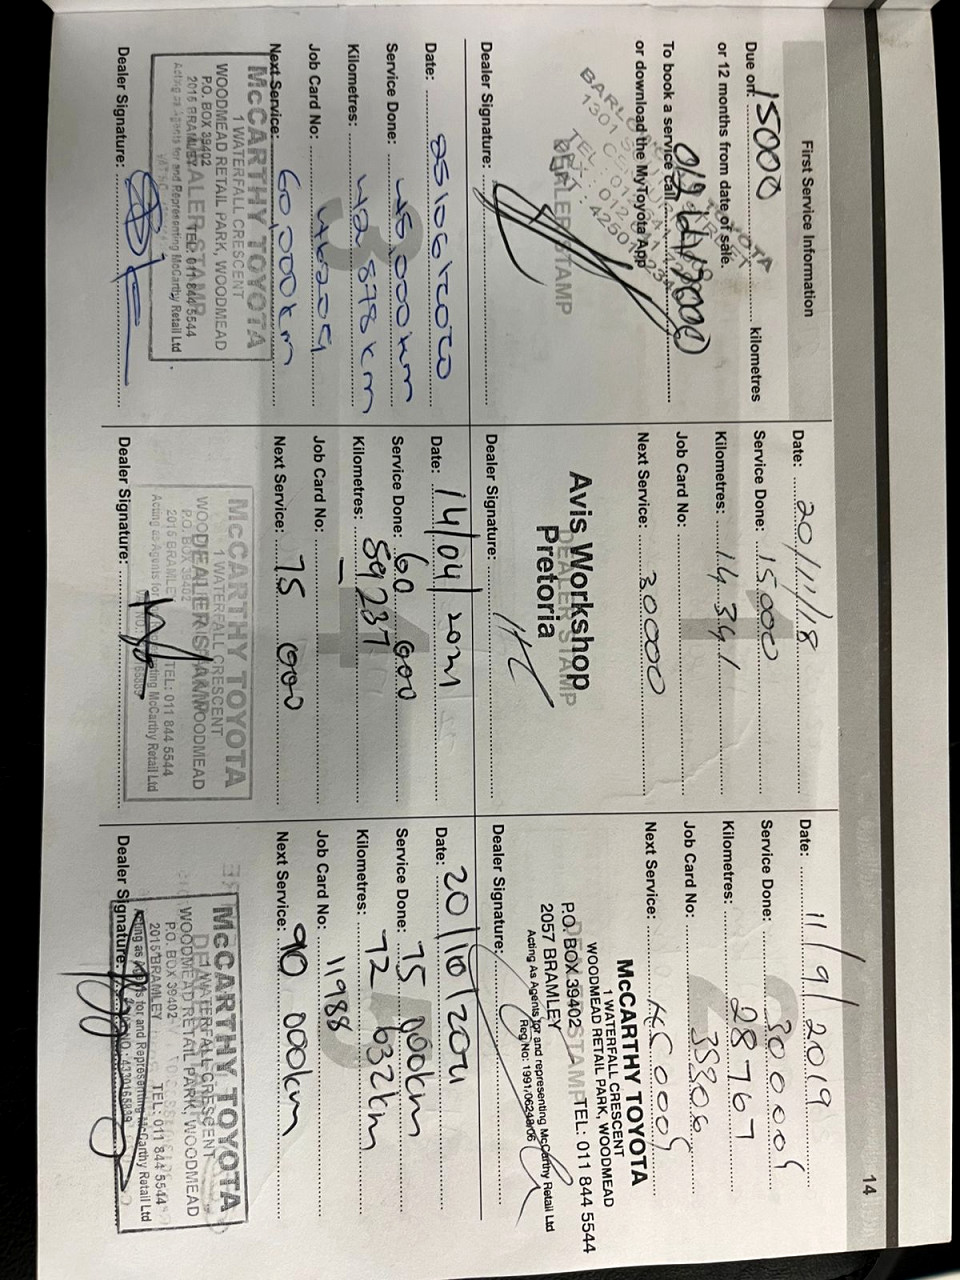 14
First Service Information
Due on: 15000 kilometres
or 12 months from date of sale.
To book a service call
or download the MyToyota App
DEALER STAMP
Dealer Signature:
Date: 20/11/18
Service Done: 15000
Kilometres: 14 341
Job Card No:
Next Service: 30000
Avis Workshop
Pretoria
DEALER STAMP
Dealer Signature:
Date: 11/9/2019
Service Done: 30000
Kilometres: 28767
Job Card No: 35306
Next Service: 45000
McCARTHY TOYOTA
1 WATERFALL CRESCENT
WOODMEAD RETAIL PARK, WOODMEAD
P.O. BOX 39402 TEL: 011 844 5544
2057 BRAMLEY
Acting As Agents for and representing McCarthy Retail Ltd
Dealer Signature:
Date: 25/06/2020
Service Done: 45,000km
Kilometres: 42 878km
Job Card No:
Next Service: 60,000km
McCARTHY TOYOTA
1 WATERFALL CRESCENT
WOODMEAD RETAIL PARK, WOODMEAD
P.O. BOX 39402
2015 BRAMLEY TEL: 011 844 5544
Acting as Agents for and Representing McCarthy Retail Ltd
Dealer Signature:
Date: 14/04/2021
Service Done: 60 000
Kilometres: 59237
Job Card No: –
Next Service: 75 000
McCARTHY TOYOTA
1 WATERFALL CRESCENT
WOODMEAD
P.O. BOX 39402
2015 BRAMLEY TEL: 011 844 5544
Acting as Agents for McCarthy Retail Ltd
Dealer Signature:
Date: 20/10/2021
Service Done: 75 000km
Kilometres: 72 632km
Job Card No: 11988
Next Service: 90 000km
McCARTHY TOYOTA
1 WATERFALL CRESCENT
WOODMEAD RETAIL PARK, WOODMEAD
P.O. BOX 39402
2015 BRAMLEY TEL: 011 844 5544
Acting as Agents for and Representing McCarthy Retail Ltd
Dealer Signature: